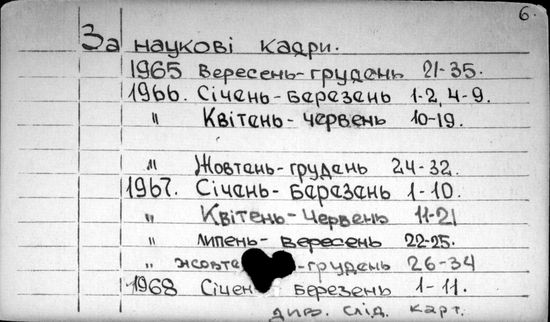 6.
За наукові кадри.
1965 Вересень-грудень 21-35.
1966. Січень-Березень 1-2, 4-9.
" Квітень-червень 10-19.
" Жовтень-грудень 24-32.
1967. Січень-Березень 1-10.
" Квітень-Червень 11-21
" липень-вересень 22-25.
" жовте -грудень 26-34
1968 Січен березень 1-11.
див. слід. карт.